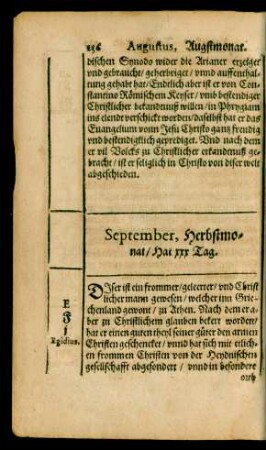 236 Augustus, Augstmonat.
dischen Synodo wider die Arianer erzelget
vnd gebraucht/ geherbriget/ vnnd auffenthal-
tung gehabt hat/ Endtlich aber ist er von Con-
stantino Römischem Keyser/ vmb bestendiger
Christlicher bekandtnuß willen/ in Phrygiam
ins elende verschickt worden/ daselbst hat er das
Euangelium vonn Jesu Christo gantz freudig
vnd bestendigklich geprediget. Vnd nach dem
er vil Volcks zu Christlicher erkandtnuß ge-
bracht/ ist er seligklich in Christo von diser welt
abgescheiden.
September, Herbstmo-
nat/ Hat xxx Tag.
E
F
j
Egidius.
DIser ist ein frommer/ gelerter/ vnd Christ
licher mann gewesen/ welcher inn Grie-
chenland gewont/ zu Athen. Nach dem er a-
ber zu Christlichem glauben bekert worden/
hat er einen guten theyl seiner güter den armen
Christen geschencket/ vnnd hat sich mit etlich-
en frommen Christen von der Heydnischen
gesellschafft abgesondert/ vnnd in besondere